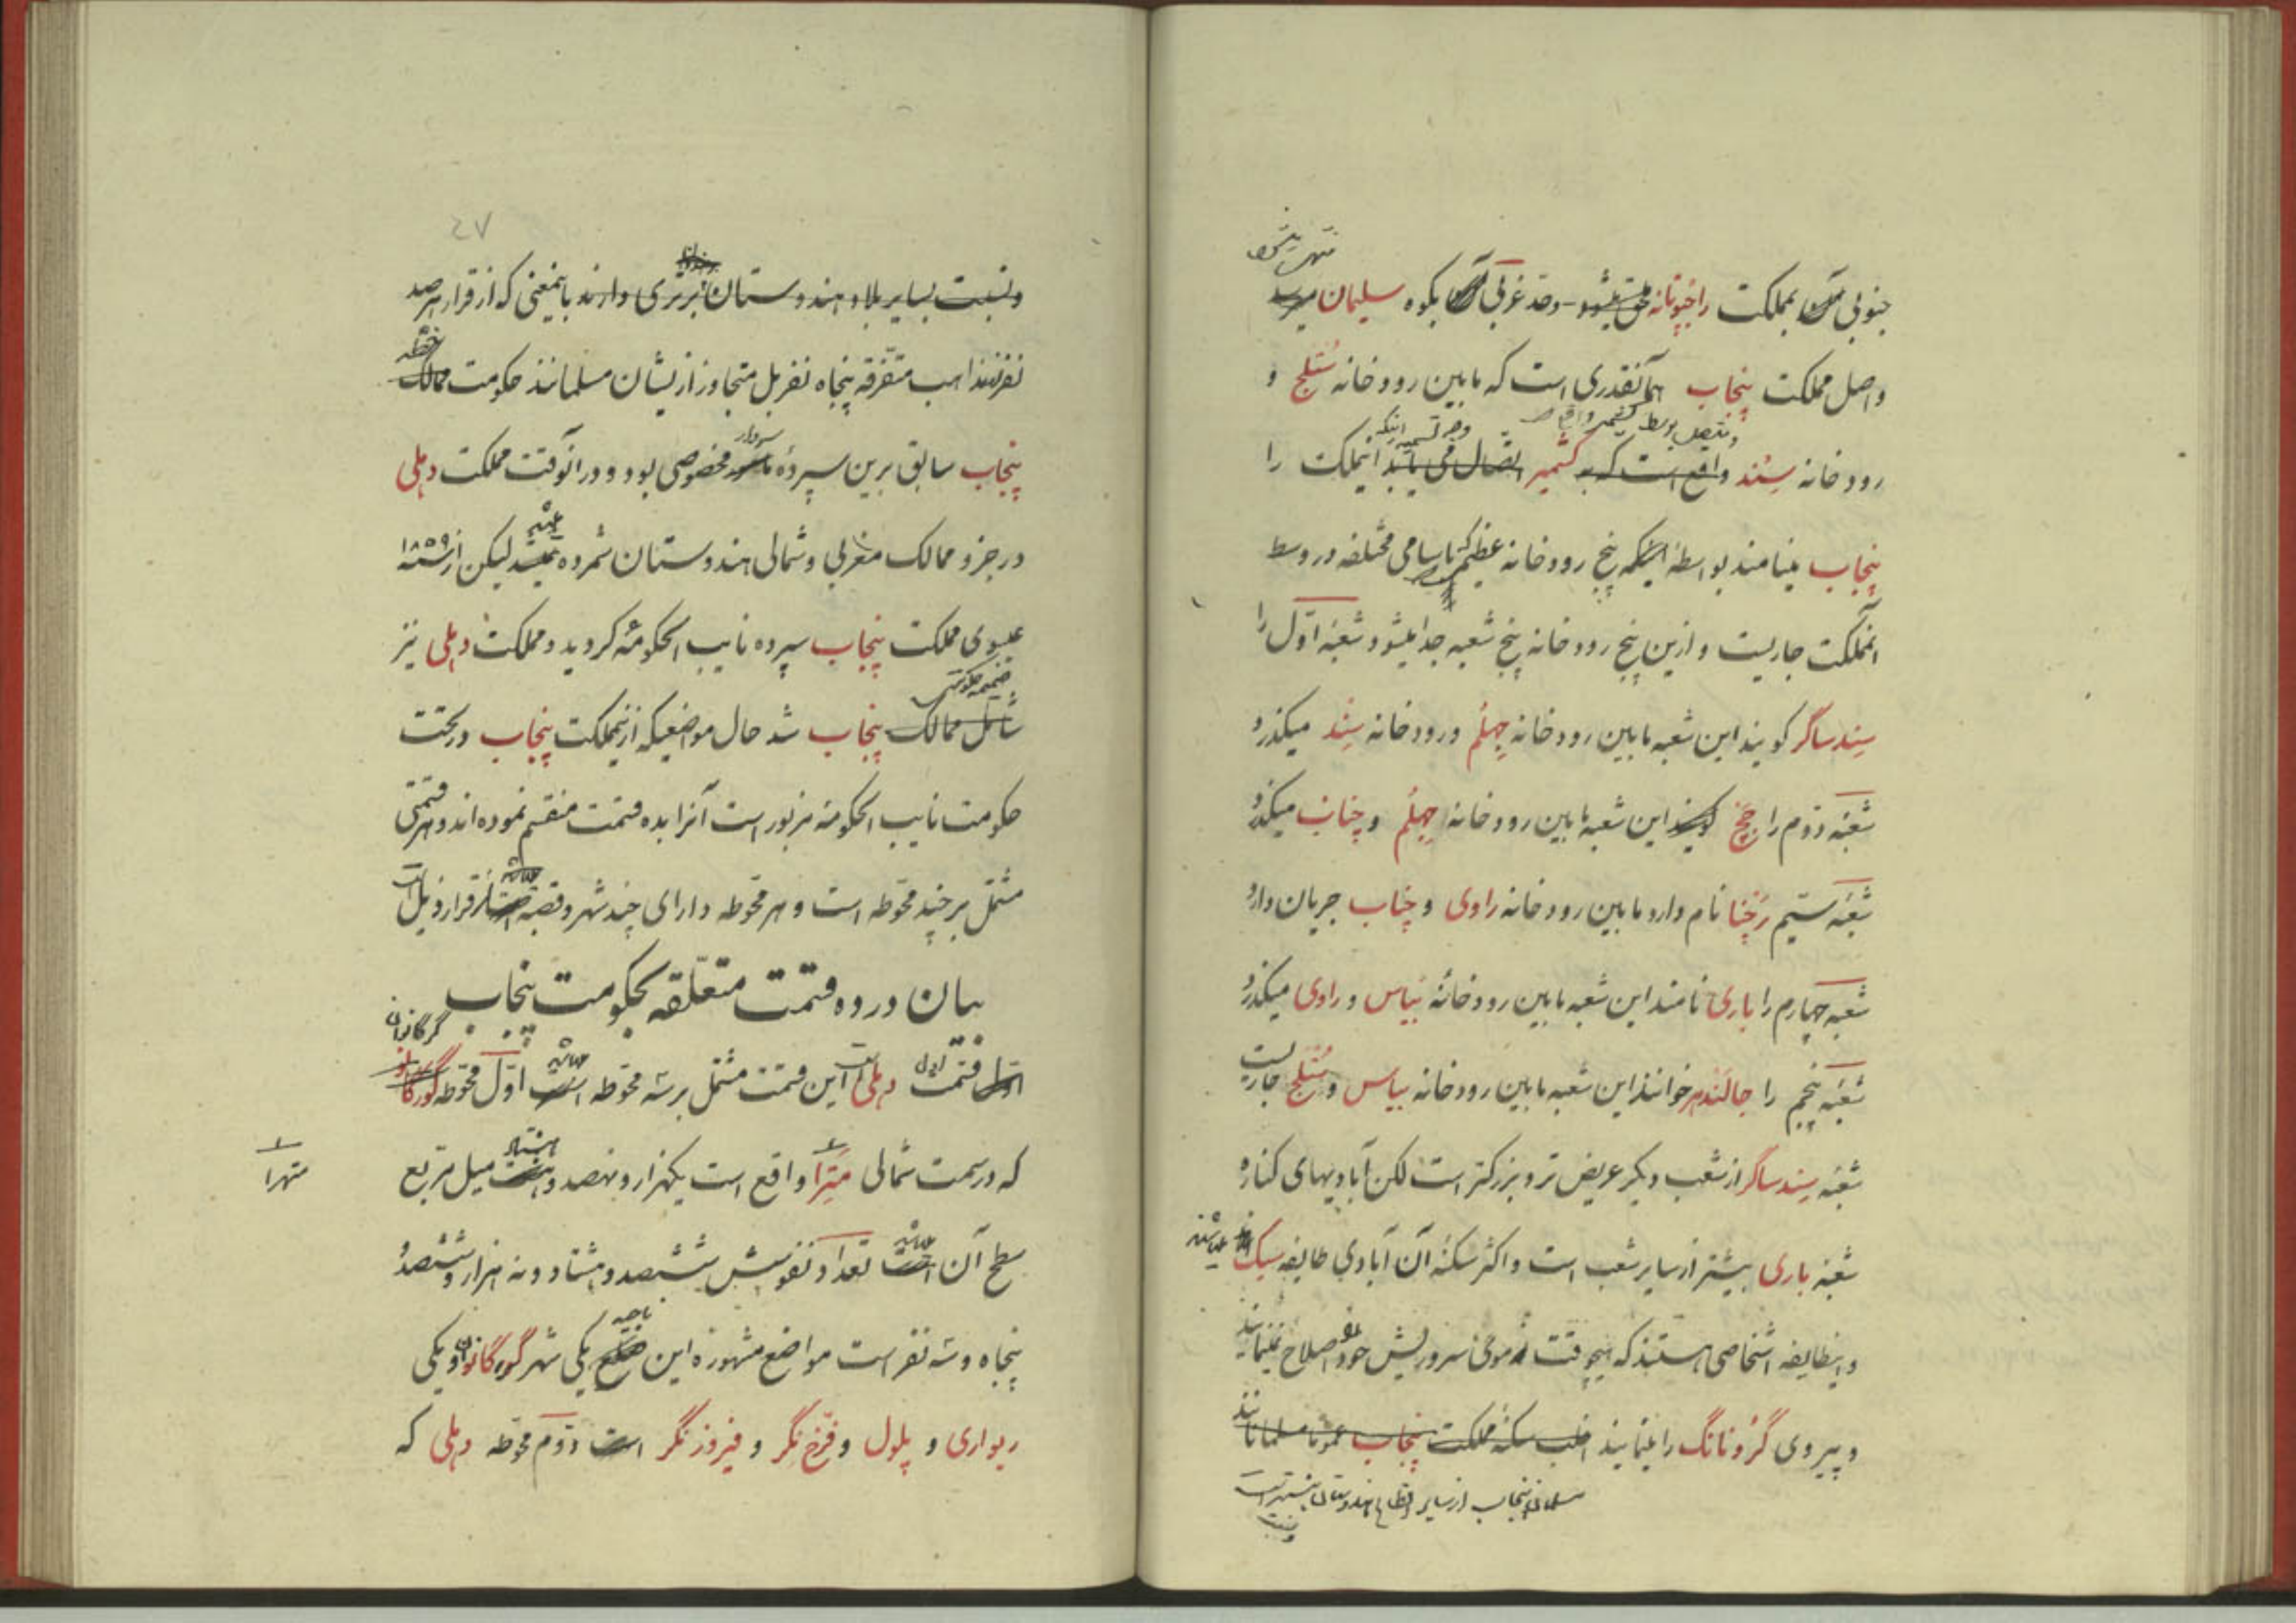 منتهی میشود
جنوبی آن بمملکت راجپوتانه ملحق میشود - وحد غربی آن بکوه سلیمان میرسد
واصل مملکت پنجاب همانقدری است که مابین رودخانه ستلج و
ومتصل بوسط کشمیر
وجه تسمیه اینکه
رودخانه سند واقع است که به کشمیر اتصال می یابد اینملکت را
پنجاب مینامند بواسطهٔ اینکه پنج رودخانه عظیم که باسامی مختلفه در وسط
آنمملکت جاریست و ازین پنج رودخانه پنج شعبه جدا میشود شعبهٔ اوّل را
سند ساگر کویند این شعبه مابین رودخانه جهلم ورودخانه سند میکذرد
شعبهٔ دوّم را چج کویند این شعبه مابین رودخانه جهلم و چناب میکذرد
شعبهٔ سیّم رچنا نام دارد مابین رودخانه راوی و چناب جریان دارد
شعبهٔ چهارم را باری نامند این شعبه مابین رودخانهٔ بیاس و راوی میکذرد
شعبهٔ پنجم را جالندهر خوانند این شعبه مابین رودخانه بیاس و ستلج جاریست
شعبهٔ سند ساگر از شعب دیکر عریض تر و بزرکتر است لکن آبادیهای کناره
شعبهٔ باری بیشتر از سایر شعب است و اکثر سکنهٔ آن آبادی طایفه سیک میباشند
واینطایفه اشخاصی هستند که هیچوقت موی سر وریش خود اصلاح نمینمایند
و پیروی گرونانگ را مینمایند اغلب سکنهٔ مملکت پنجاب عموماً مسلمانانند
مسلمانان پنجاب از سایر اقطاع هندوستان بیشتر است
۴۷
ونسبت بسایر بلاد هندوستان برتری دارند باینمعنی که از قرار هر صد
نفر مذاهب متفرقه پنجاه نفر بل متجاوز از ایشان مسلمانند حکومت ممالک
خطه
سردار
پنجاب سابق برین سپردهٔ مخصوصی بود و در آنوقت مملکت دهلی
در جزو ممالک مغربی و شمالی هندوستان شمرده میشد لیکن از سنهٔ ۱۸۵۹
عیسوی مملکت پنجاب سپرده نایب الحکومهٔ کردید ومملکت دهلی نیز
ضمیمه حکومت
شامل ممالک پنجاب شد حال مواضعیکه ازینمملکت پنجاب در تحت
حکومت نایب الحکومهٔ مزبور است آنرا بده قسمت منقسم نموده اند و هر قسمتی
مشتمل بر چند محوطه است و هر محوطه دارای چند شهر و قصبه است از قرار ذیل
بیان در ده قسمت متعلّقه بحکومت پنجاب
گرگانوان
قسمت اوّل دهلی این قسمت مشتمل بر سه محوطه است اوّل محوطه گورگانو
که در سمت شمالی مترا واقع است یکهزار و نهصد و هشت میل مربع
هشتاد
متهرا
سطح آن است تعداد نفوسش ششصد و هشتاد و نه هزار و ششصد و
پنجاه وسه نفر است مواضع مشهورهٔ این ضلع یکی شهر گورگانوان و یکی
ناحیه
ریواری و پلول و فرّخ نگر و فیروز نگر است دوّم محوّطه دهلی که